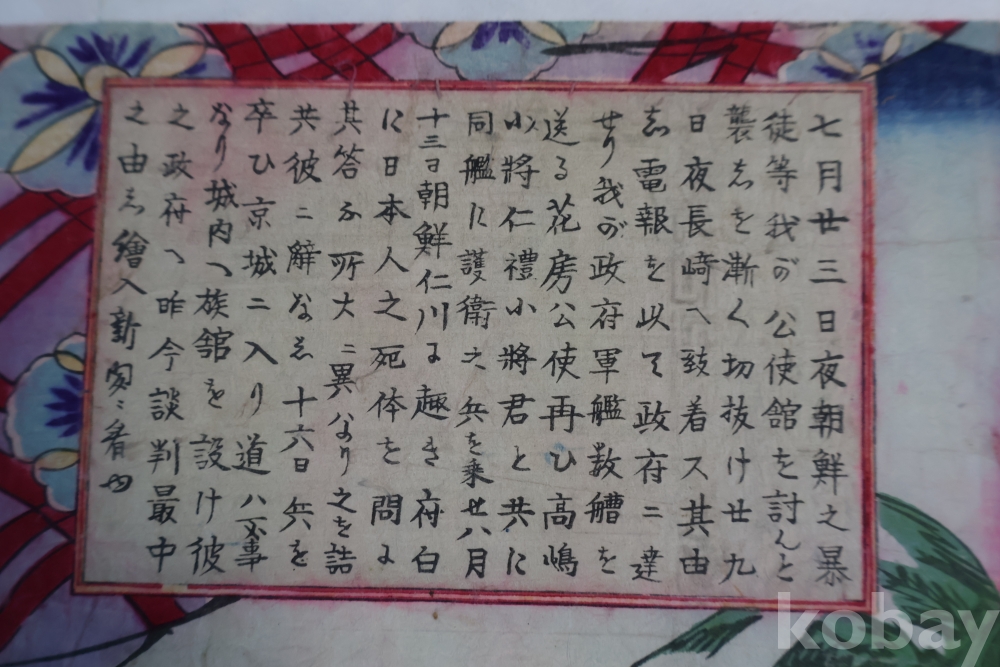 七月廿三日夜朝鮮之暴
徒等我が公使館を討んと
襲しを漸く切抜け廿九
日夜長崎へ致着ス其由
志電報を以て政府ニ達
せり我が政府軍艦数艚を
送る花房公使再ひ高嶋
小将仁禮小將君と共に
同艦に護衛之兵を乗せ八月
十三日朝鮮仁川に趣き府白
に日本人之死体を問ふ
其答ふ所大ニ異なり之を詰
共彼ニ辭なし十六日兵を
卒ひ京城ニ入り道ハ無事
なり城内へ族舘を設け彼
之政府へ昨今談判最中
之由し繪入新聞ニ看
kobay